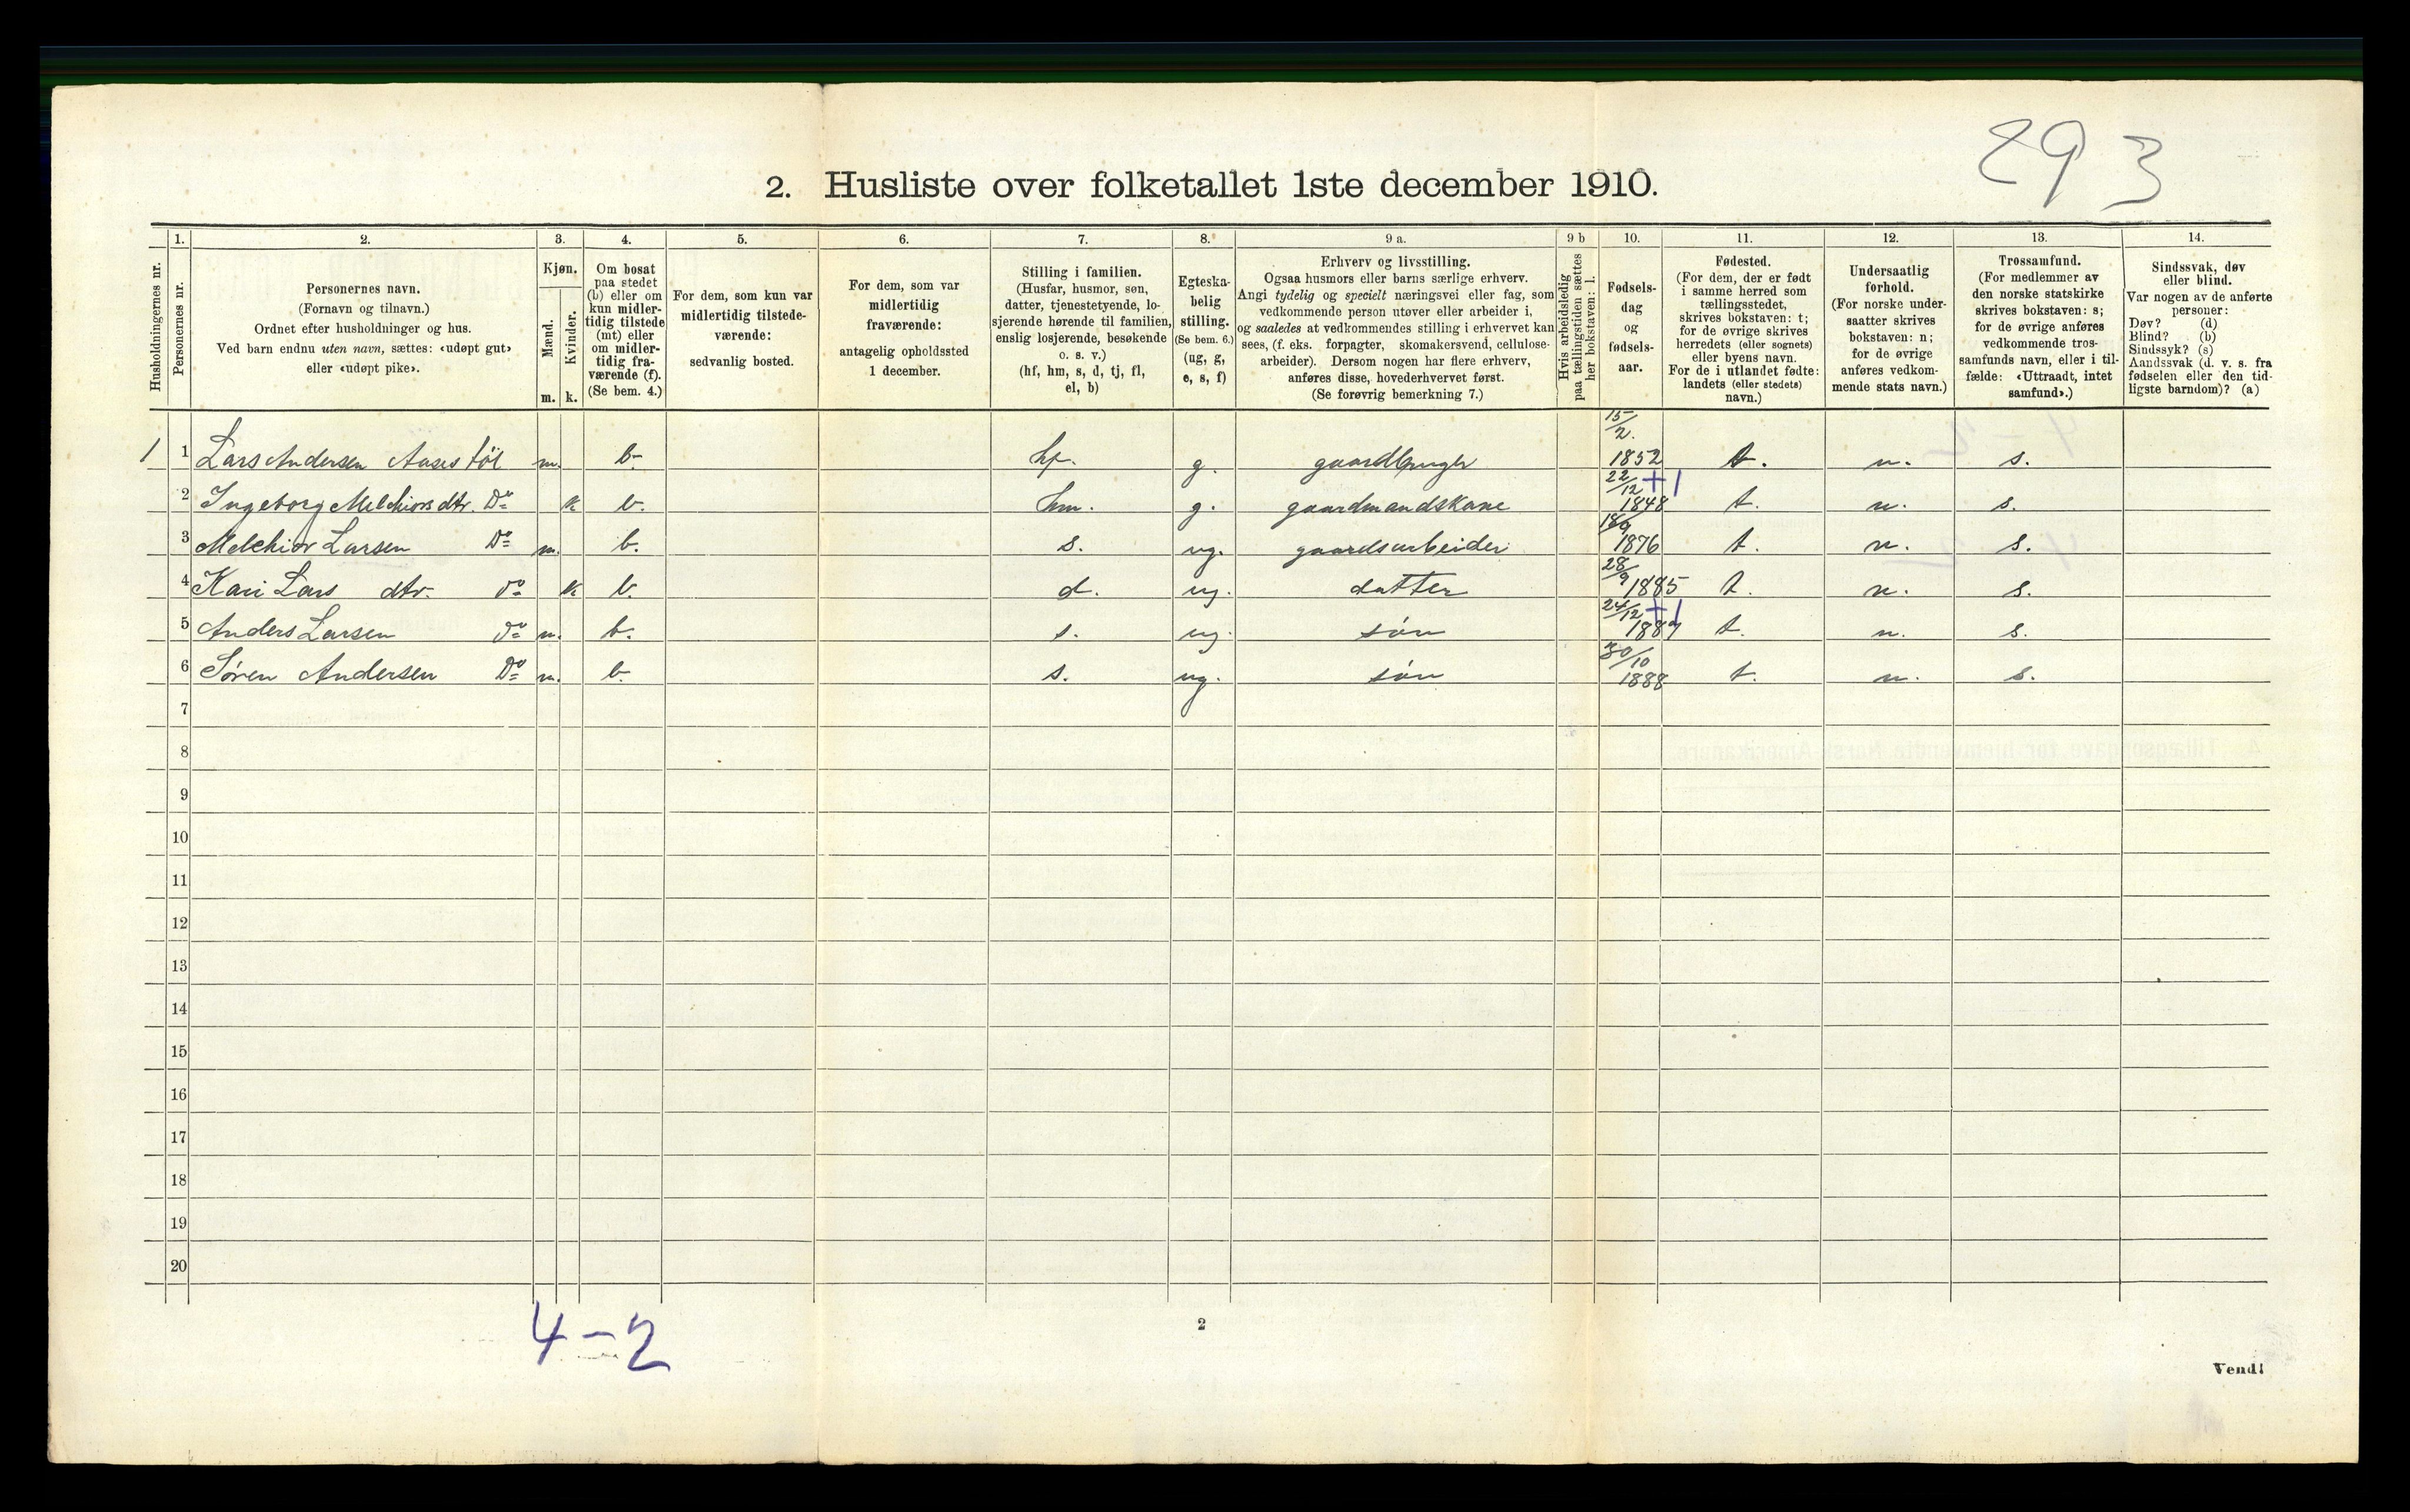 293
2. Husliste over folketallet 1ste december 1910.
Husholdningernes nr.
1.
Personernes nr.
2.
Personernes navn.
(Fornavn og tilnavn.)
Ordnet efter husholdninger og hus.
Ved barn endnu uten navn, sættes: «udøpt gut»
eller «udøpt pike».
3.
Kjøn.
Mænd.
Kvinder.
m. k.
4.
Om bosat
paa stedet
(b) eller om
kun midler-
tidig tilstede
(mt) eller
om midler-
tidig fra-
værende (f).
(Se bem. 4.)
5.
For dem, som kun var
midlertidig tilstede-
værende:
sedvanlig bosted.
6.
For dem, som var
midlertidig
fraværende:
antagelig opholdssted
1 december.
7.
Stilling i familien.
(Husfar, husmor, søn,
datter, tjenestetyende, lo-
sjerende hørende til familien,
enslig losjerende, besøkende
o. s. v.)
(hf, hm, s, d, tj, fl,
el, b)
8.
Egteska-
belig
stilling.
(Se bem. 6.)
(ug, g,
e, s, f)
9 a.
Erhverv og livsstilling.
Ogsaa husmors eller barns særlige erhverv.
Angi tydelig og specielt næringsvei eller fag, som
vedkommende person utøver eller arbeider i,
og saaledes at vedkommendes stilling i erhvervet kan
sees, (f. eks. forpagter, skomakersvend, cellulose-
arbeider). Dersom nogen har flere erhverv,
anføres disse, hovederhvervet først.
(Se forøvrig bemerkning 7.)
9 b
Hvis arbeidsledig
paa tællingstiden sættes
her bokstaven: l.
10.
Fødsels-
dag
og
fødsels-
aar.
11.
Fødested.
(For dem, der er født
i samme herred som
tællingsstedet,
skrives bokstaven: t;
for de øvrige skrives
herredets (eller sognets)
eller byens navn.
For de i utlandet fødte:
landets (eller stedets)
navn.)
12.
Undersaatlig
forhold.
(For norske under-
saatter skrives
bokstaven: n;
for de øvrige
anføres vedkom-
mende stats navn.)
13.
Trossamfund.
(For medlemmer av
den norske statskirke
skrives bokstaven: s;
for de øvrige anføres
vedkommende tros-
samfunds navn, eller i til-
fælde: «Uttraadt, intet
samfund».)
14.
Sindssvak, døv
eller blind.
Var nogen av de anførte
personer:
Døv? (d)
Blind? (b)
Sindssyk? (s)
Aandssvak (d. v. s. fra
fødselen eller den tid-
ligste barndom)? (a)
1 1 Lars Andersen m. b. hf. g. 15/2. 1852 t. n. s.
2 Ingeborg Melchiorsdtr. Do k b. hm. g. gaardmandskone 22/12 +1 1848 t. n. s.
3 Melchior Larsen Do m. b. s. ug. gaardsarbeider 18/9 1876 t. n. s.
4 Kari Lars dtr. do k b. d. ug. datter 28/9 1885 t. n. s.
5 Anders Larsen do m. b. s. ug. søn 24/12 +1 1887 t. n. s.
6 Søren Andersen Do m. b. s. ug. søn 30/10 1888 t. n. s.
7
8
9
10
11
12
13
14
15
16
17
18
19
20
4-2
2
Vend!